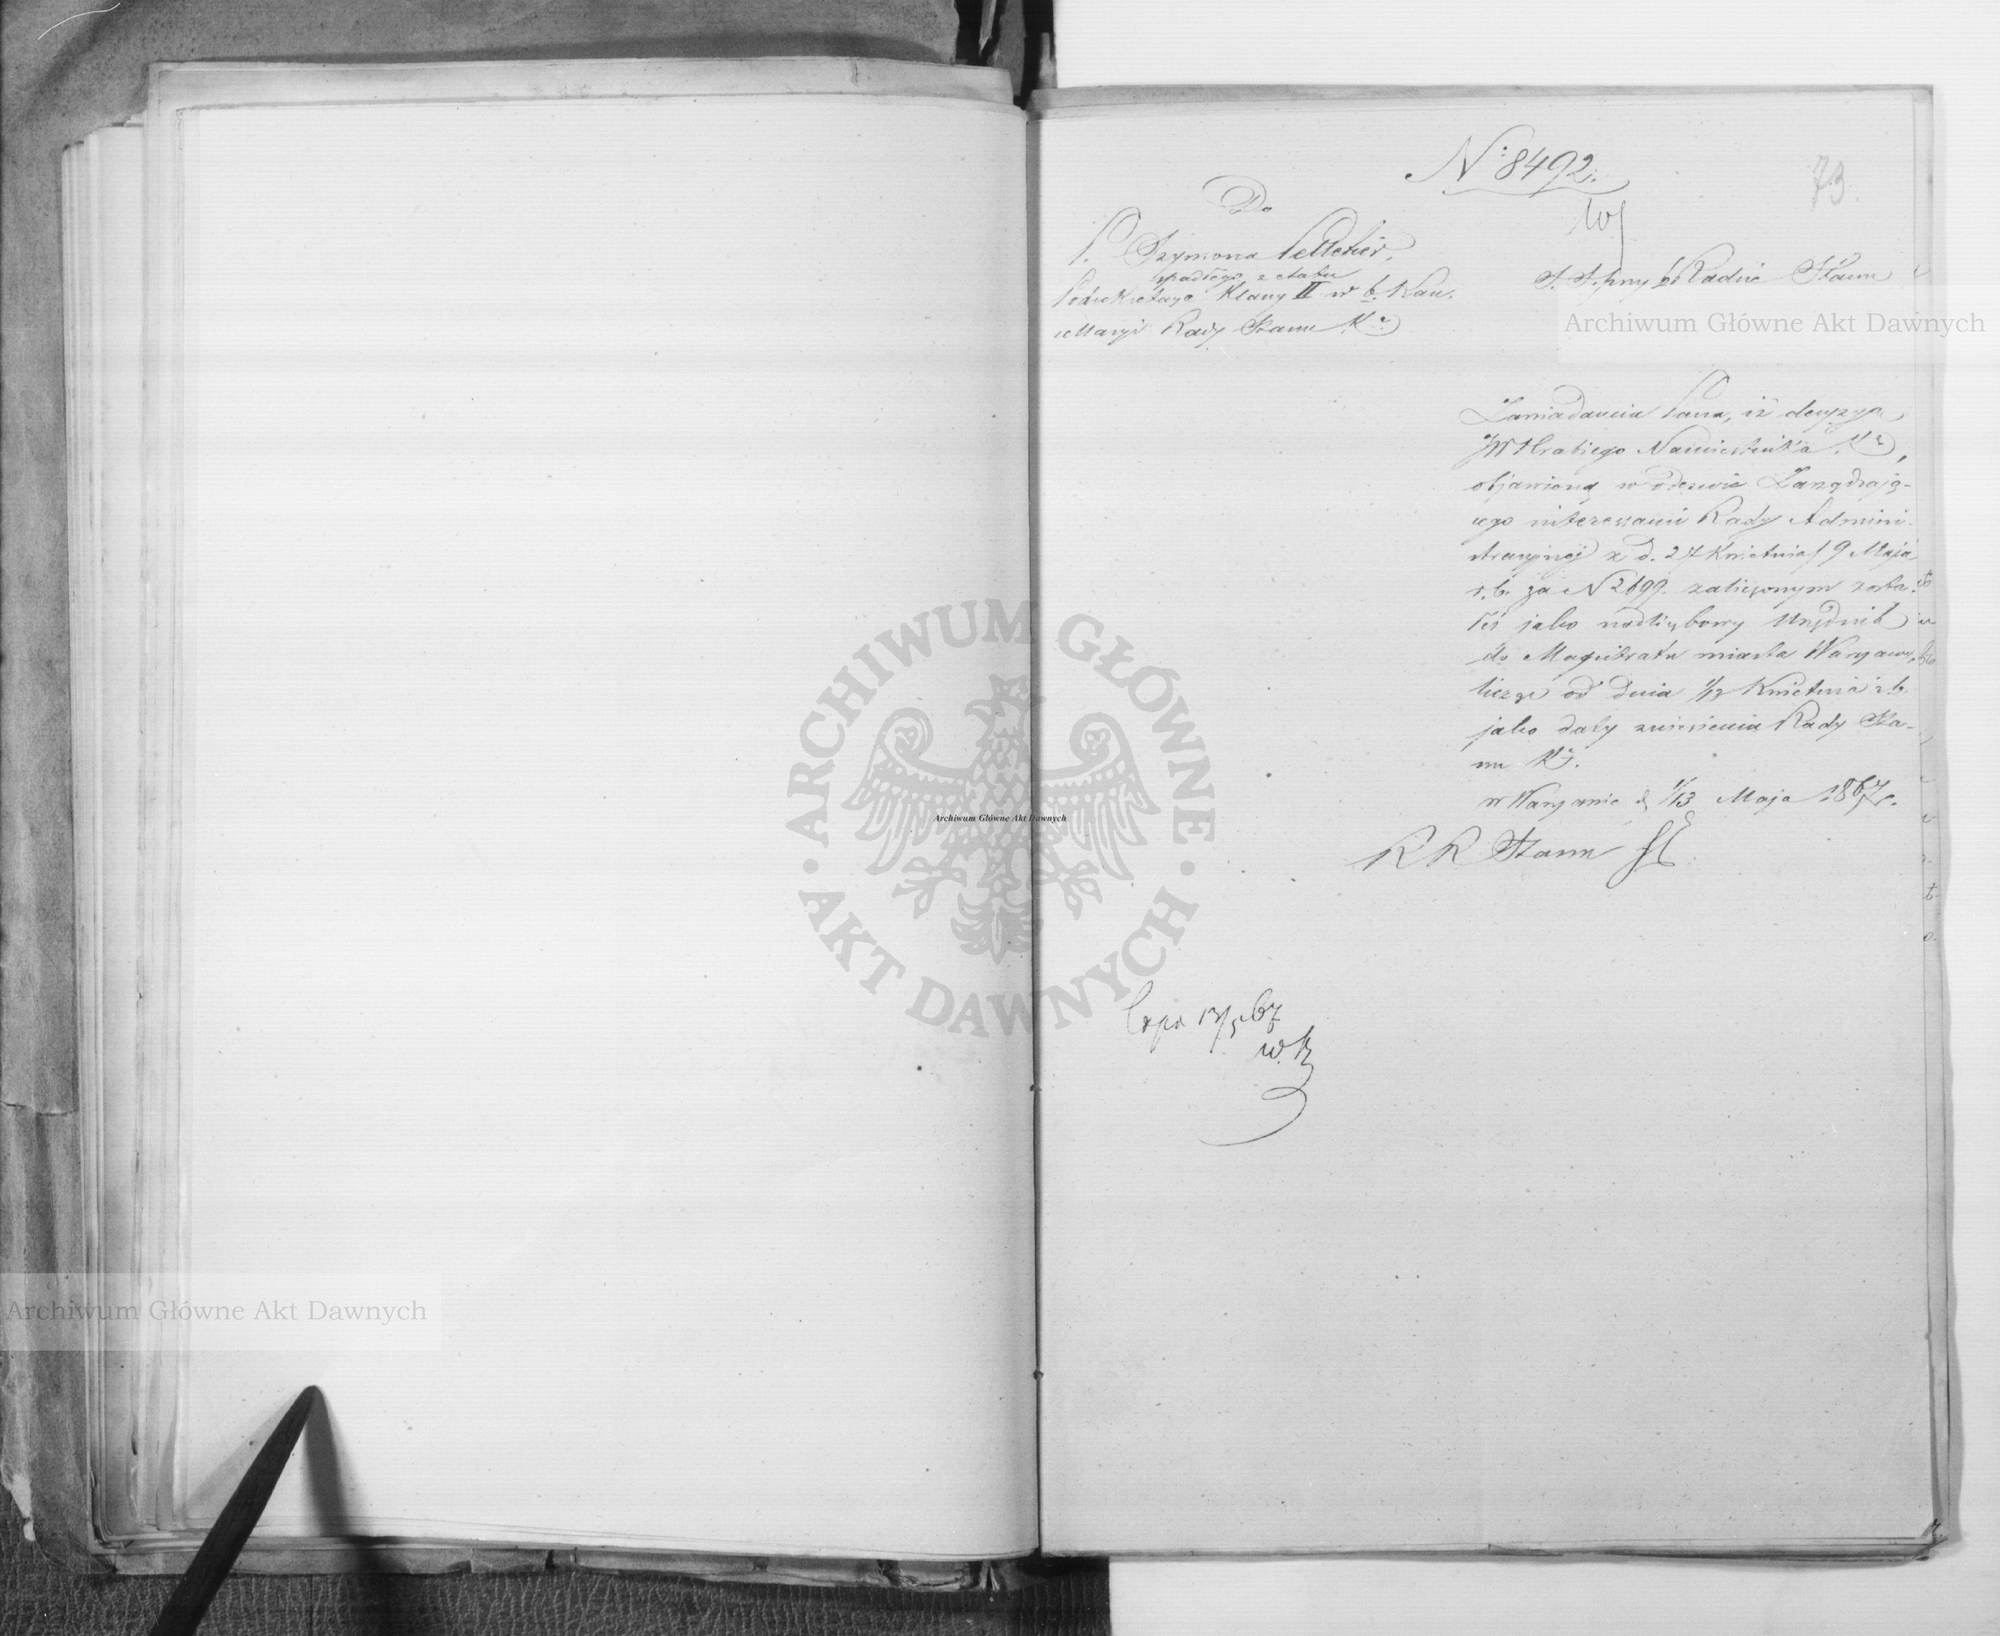 № 8492.
73.
Do
P. Szymona Pelletier,
spadłego z etatu
Podsekretarza Klassy II w b. Kan-
cellaryi Rady Stanu Kr.
S. S. przy b. Radzie Stanu
Zawiadamia Pana, iż decyzyą
JW Hrabiego Namiestnika Kr.,
objawioną w odezwie Zarządzają-
cego interessami Rady Admini-
stracyjnej z d. 27 Kwietnia / 9 Maja
r. b. za N 2199. zaliczonym zosta-
łeś jako nadliczbowy Urzędnik
do Magistratu miasta Warszawy,
licząc od dnia 1/13 Kwietnia r. b.
jako daty zniesienia Rady Sta-
nu Kr.
w Warszawie d. 1/13 Maja 1867 r.
R R Stanu
Exp 13/5 67
w. R
Archiwum Główne Akt Dawnych
Archiwum Główne Akt Dawnych
Archiwum Główne Akt Dawnych
ARCHIWUM GŁÓWNE · AKT DAWNYCH ·